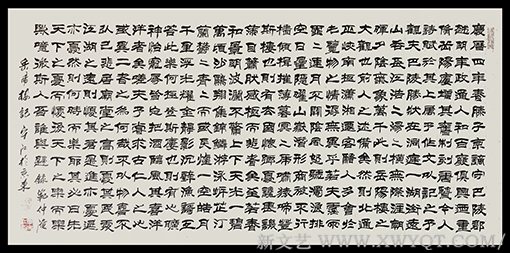 慶曆四年春滕子京謫守巴陵郡
越明年政通人和百廢俱興乃重
脩岳陽樓增其舊制刻唐賢今人
詩賦於其上屬予作文以記之予
觀夫巴陵勝狀在洞庭一湖銜遠
山吞長江浩浩湯湯橫無際涯朝
暉夕陰氣象萬千此則岳陽樓之
大觀也前人之述備矣然則北通
巫峽南極瀟湘遷客騷人多會於
此覽物之情得無異乎若夫霪雨
霏霏連月不開陰風怒號濁浪排
空日星隱曜山岳潛形商旅不行
檣傾楫摧薄暮冥冥虎嘯猿啼登
斯樓也則有去國懷鄉憂讒畏譏
滿目蕭然感極而悲者矣至若春
和景明波瀾不驚上下天光一碧
萬頃沙鷗翔集錦鱗游泳岸芷汀
蘭郁郁青青而或長煙一空皓月
千里浮光耀金靜影沉璧漁歌互
答此樂何極登斯樓也則有心曠
神怡寵辱皆忘把酒臨風其喜洋
洋者矣嗟夫予嘗求古仁人之心
或異二者之為何哉不以物喜不
以己悲居廟堂之高則憂其民處
江湖之遠則憂其君是進亦憂退
亦憂然則何時而樂耶其必曰先
天下之憂而憂後天下之樂而樂
歟噫微斯人吾誰與歸 錄范仲淹
岳陽樓記
新文艺 WWW.XWYQT.COM